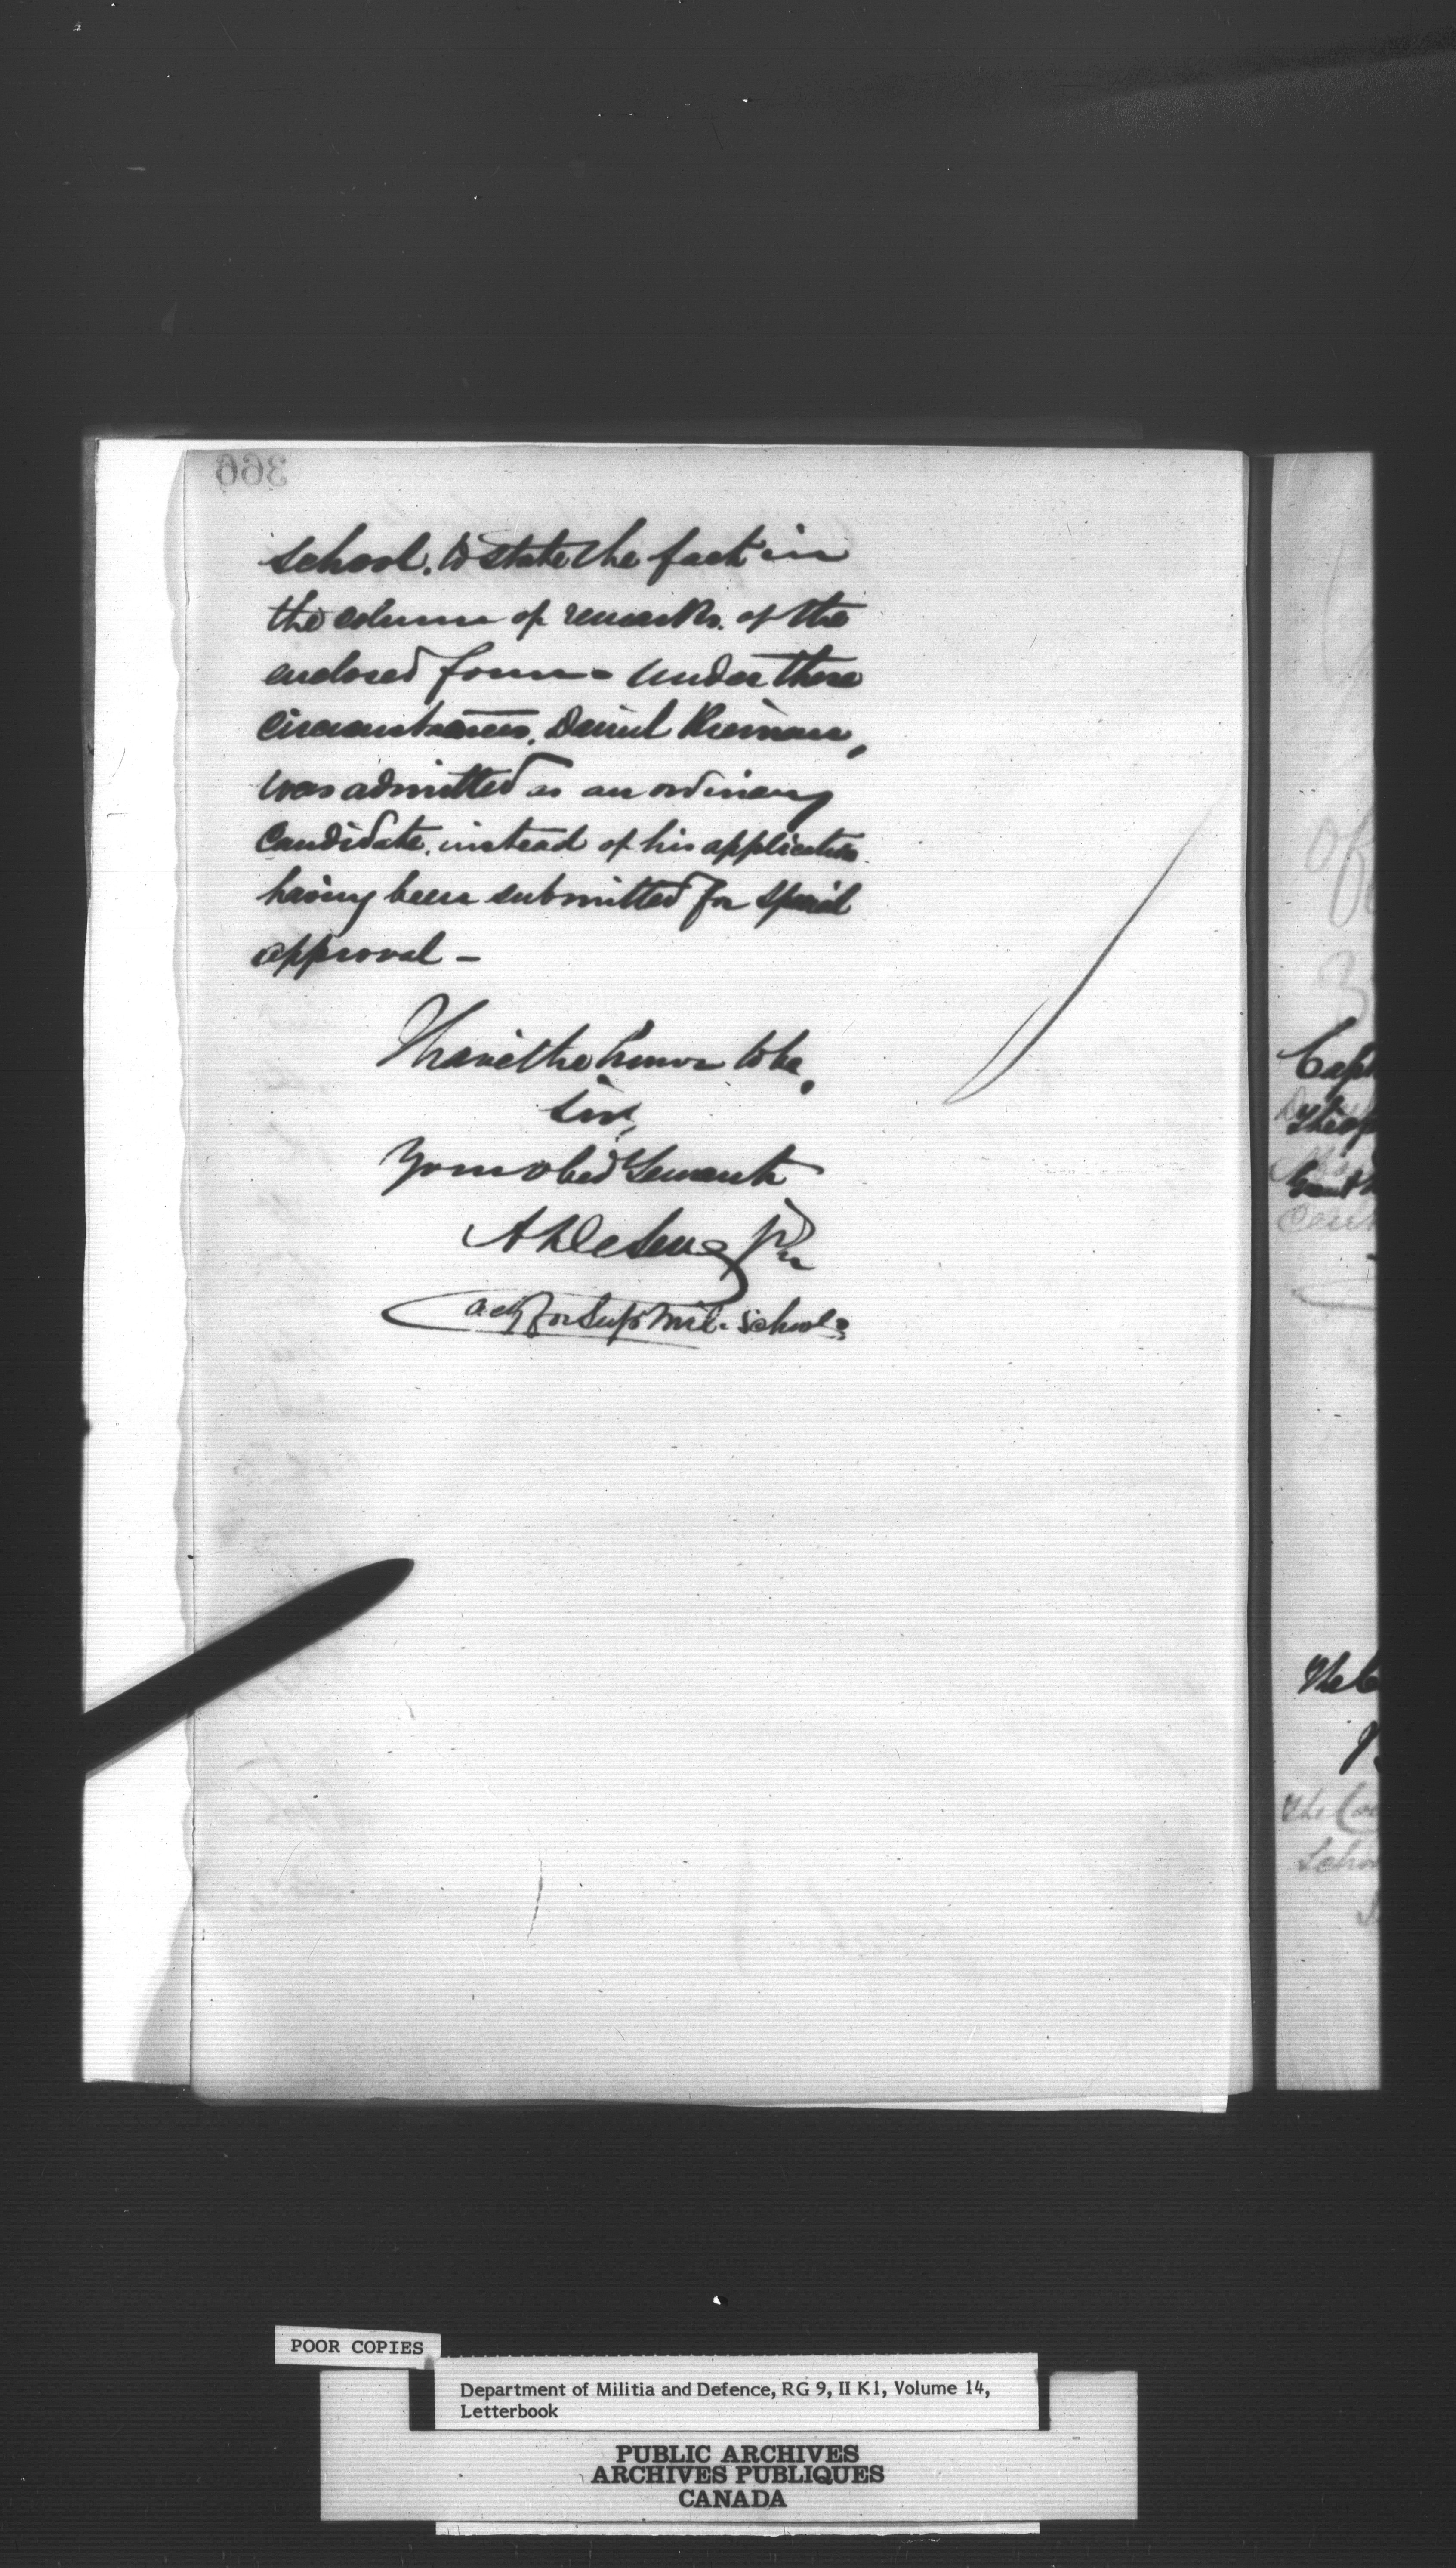 366
school. to state the fact in
the column of remarks. of the
enclosed form - under these
circumstances. Daniel
was admitted as an ordinary
Candidate. instead of his application
having been submitted for special
approval -
I have the honor to be,
Sir,
Your obed Servant
Jr
actg for Supt Mil. Schools
Capt
The C
the Co
School
POOR COPIES
Department of Militia and Defence, RG 9, II K1, Volume 14,
Letterbook
PUBLIC ARCHIVES
ARCHIVES PUBLIQUES
CANADA